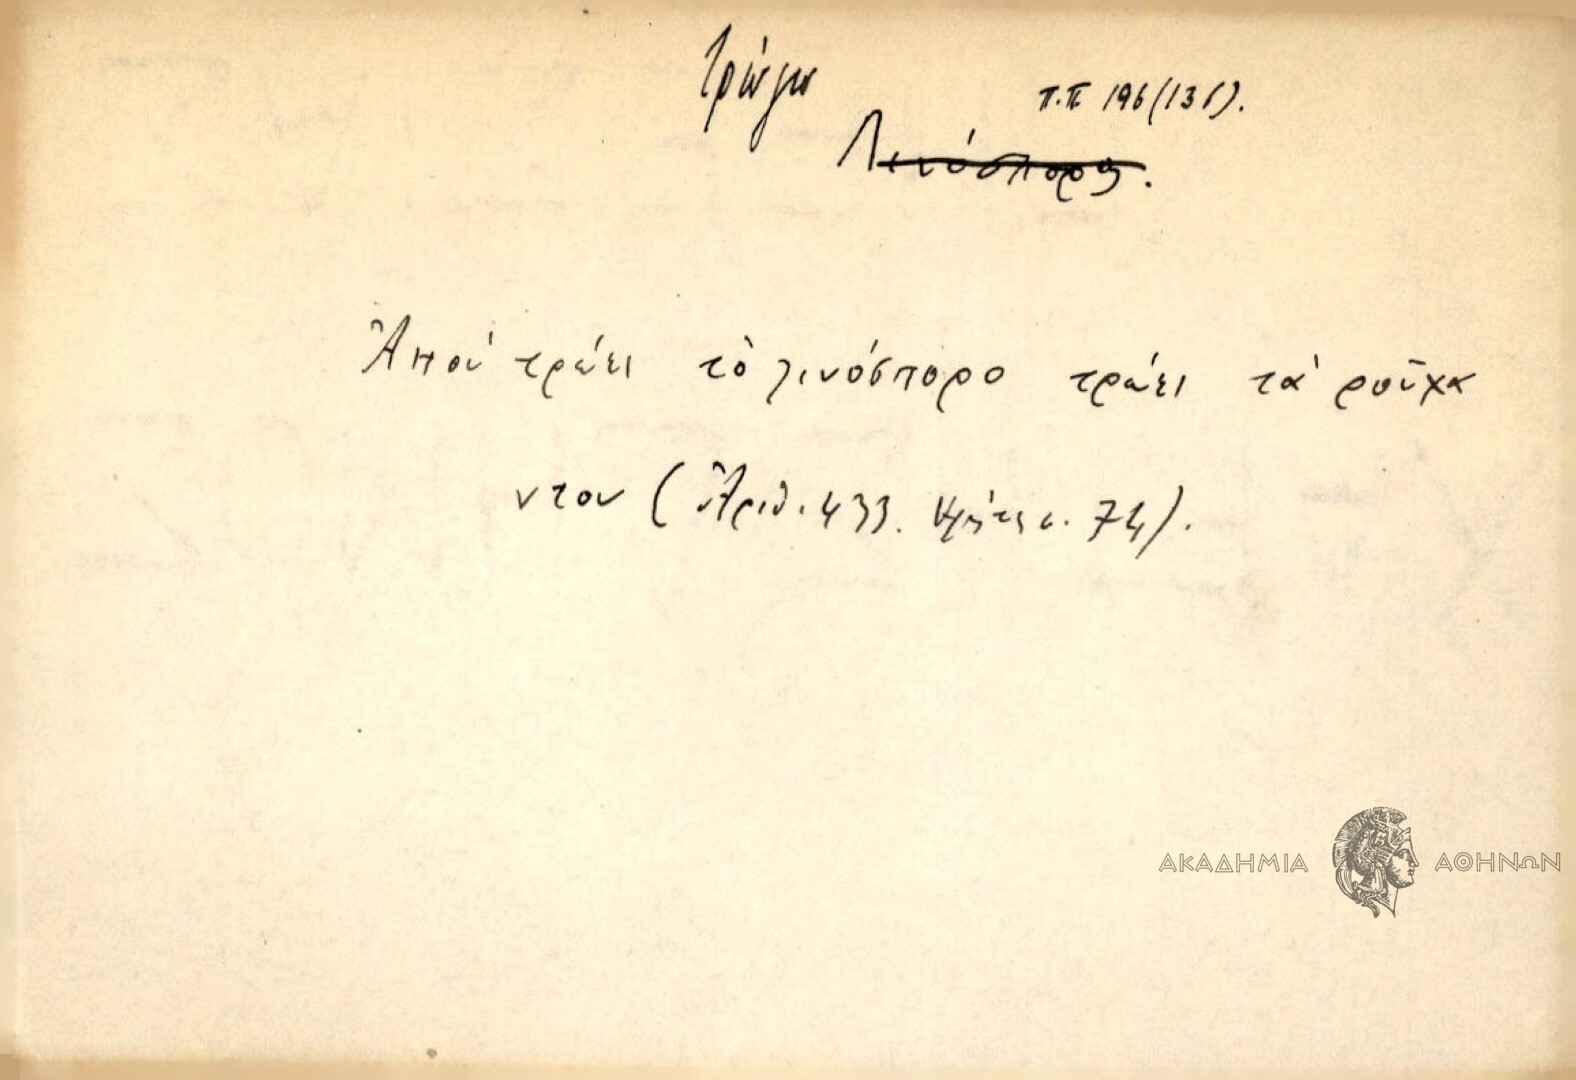 τρώγω
π.π 196 (131).
Λινόσπορος.
Ἀπού τρώει τὸ λινόσπορο τρώει τὰ ροῦχα
ντου (Ἀριθ. 433. σ. 74).
ΑΚΑΔΗΜΙΑ ΑΘΗΝΩΝ